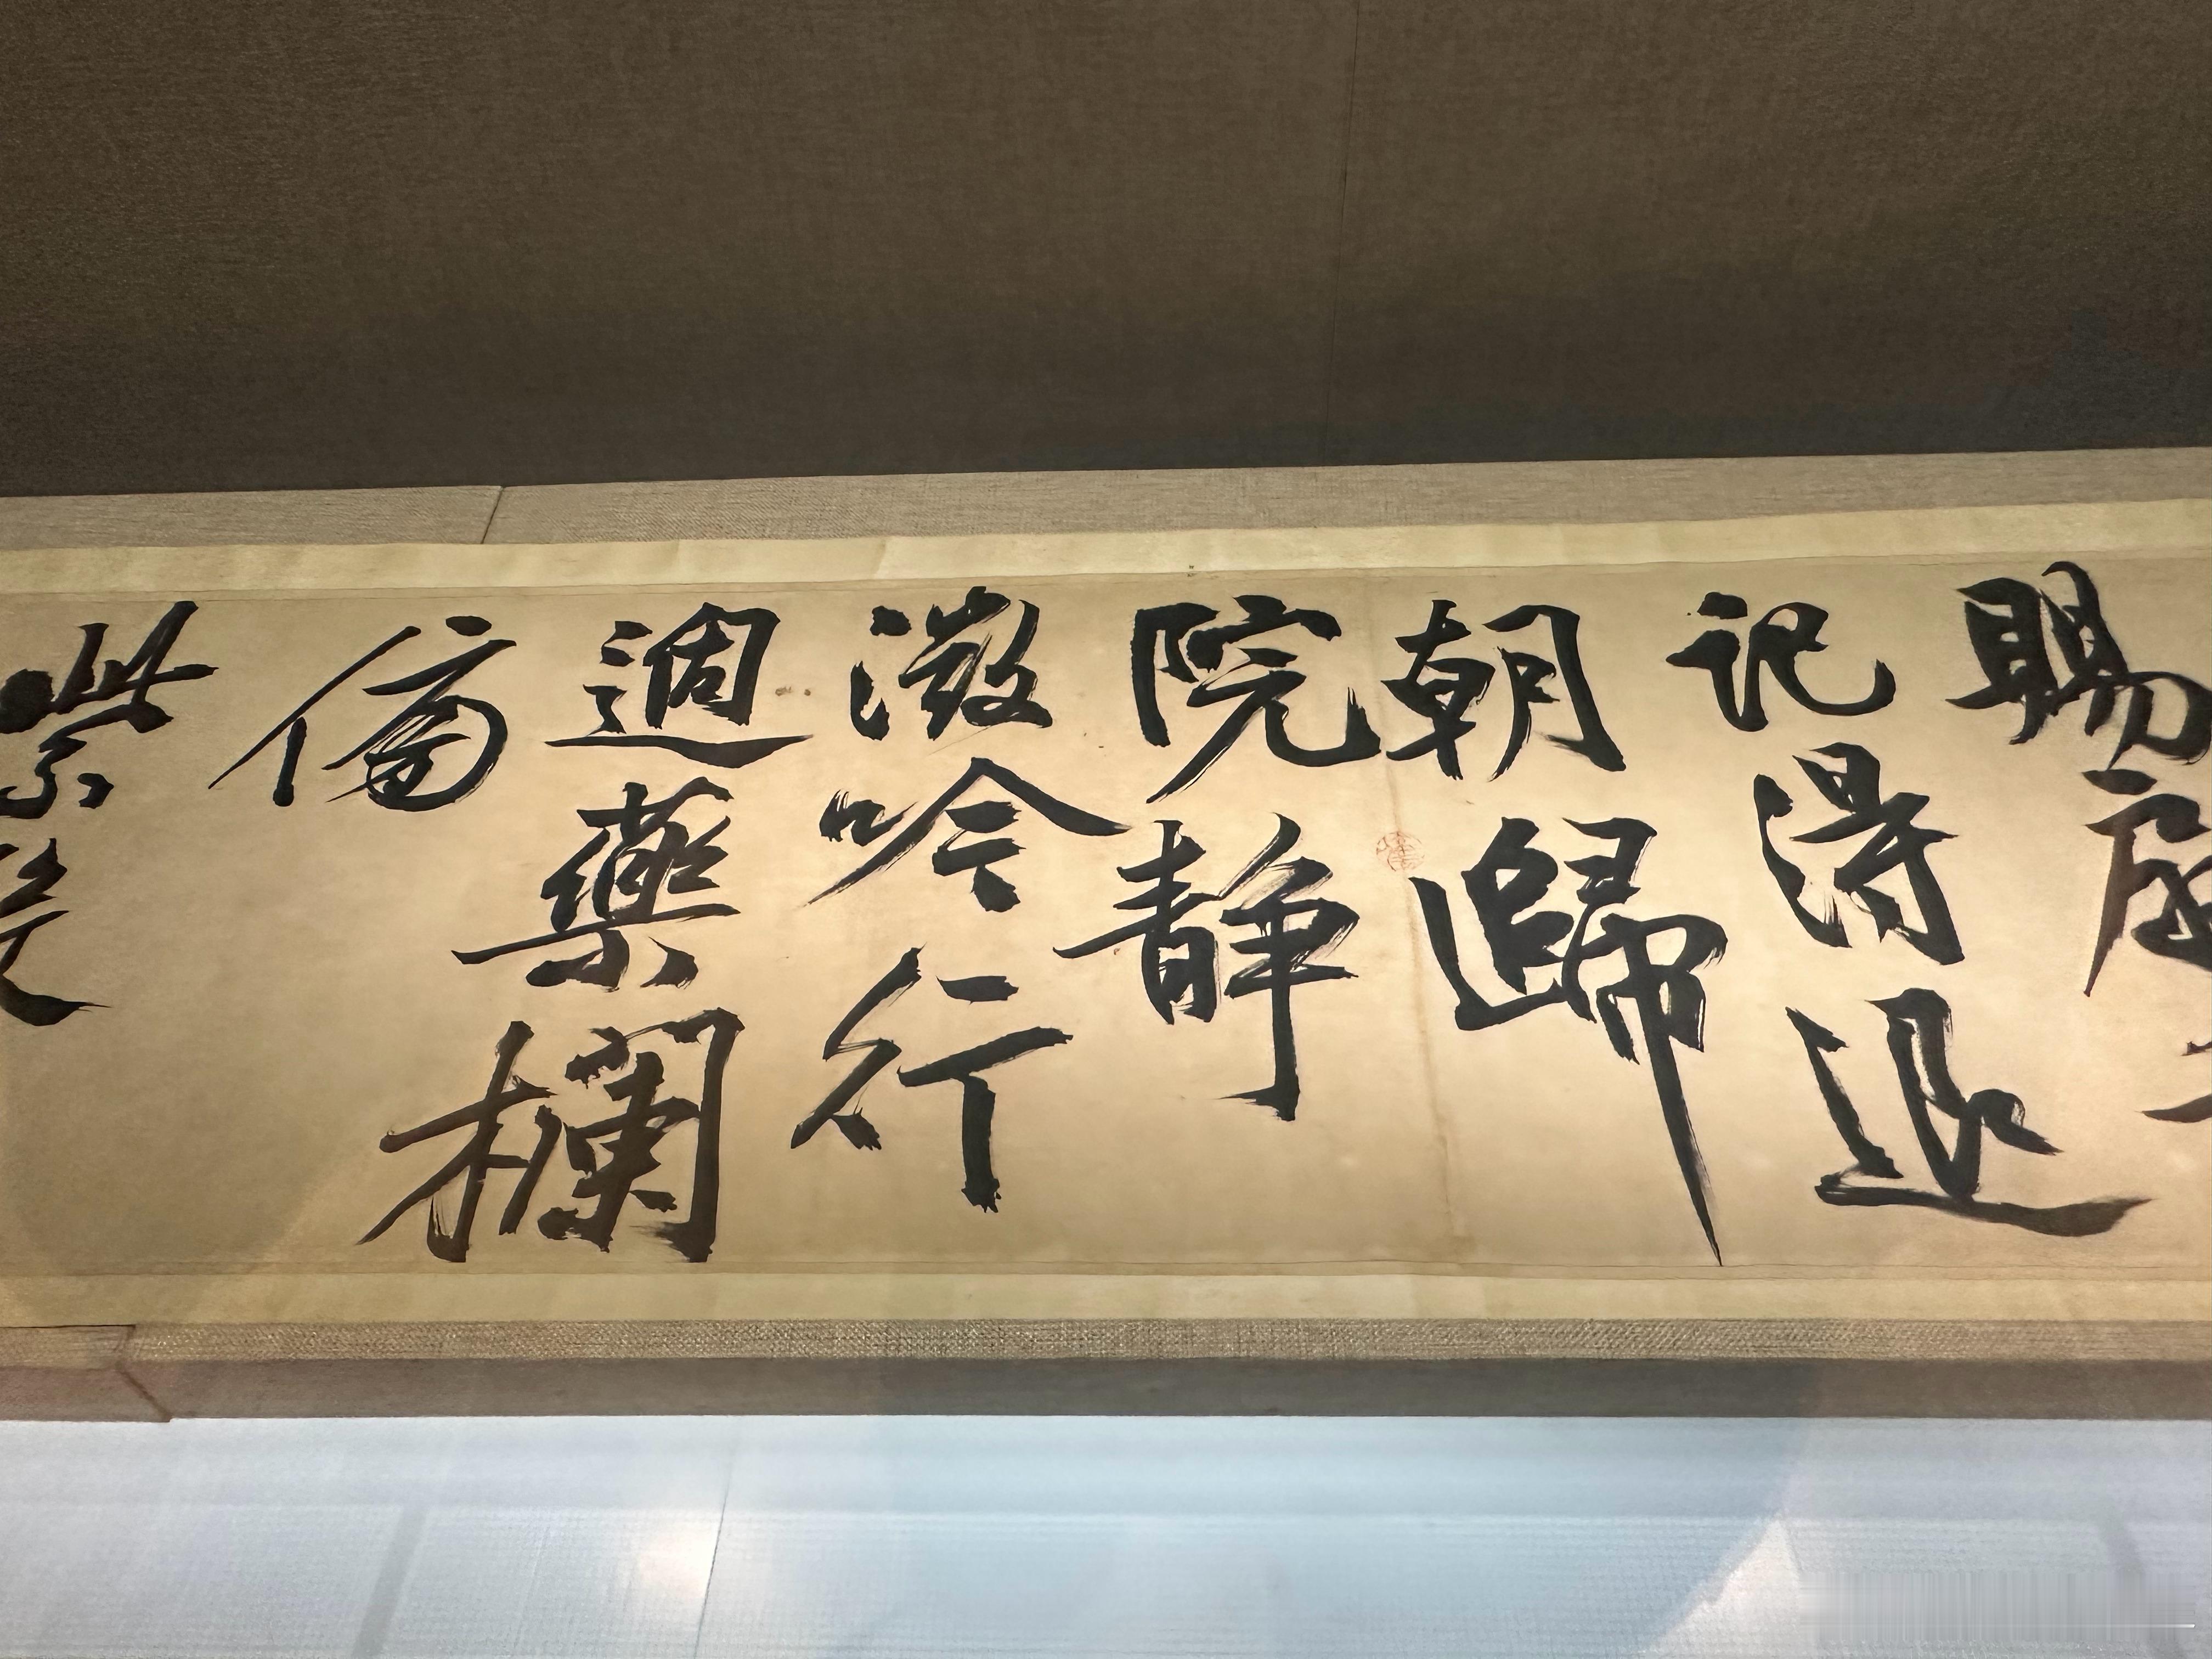 賜
記得退
朝歸
院靜
微吟行
週藥欄
偏
紫